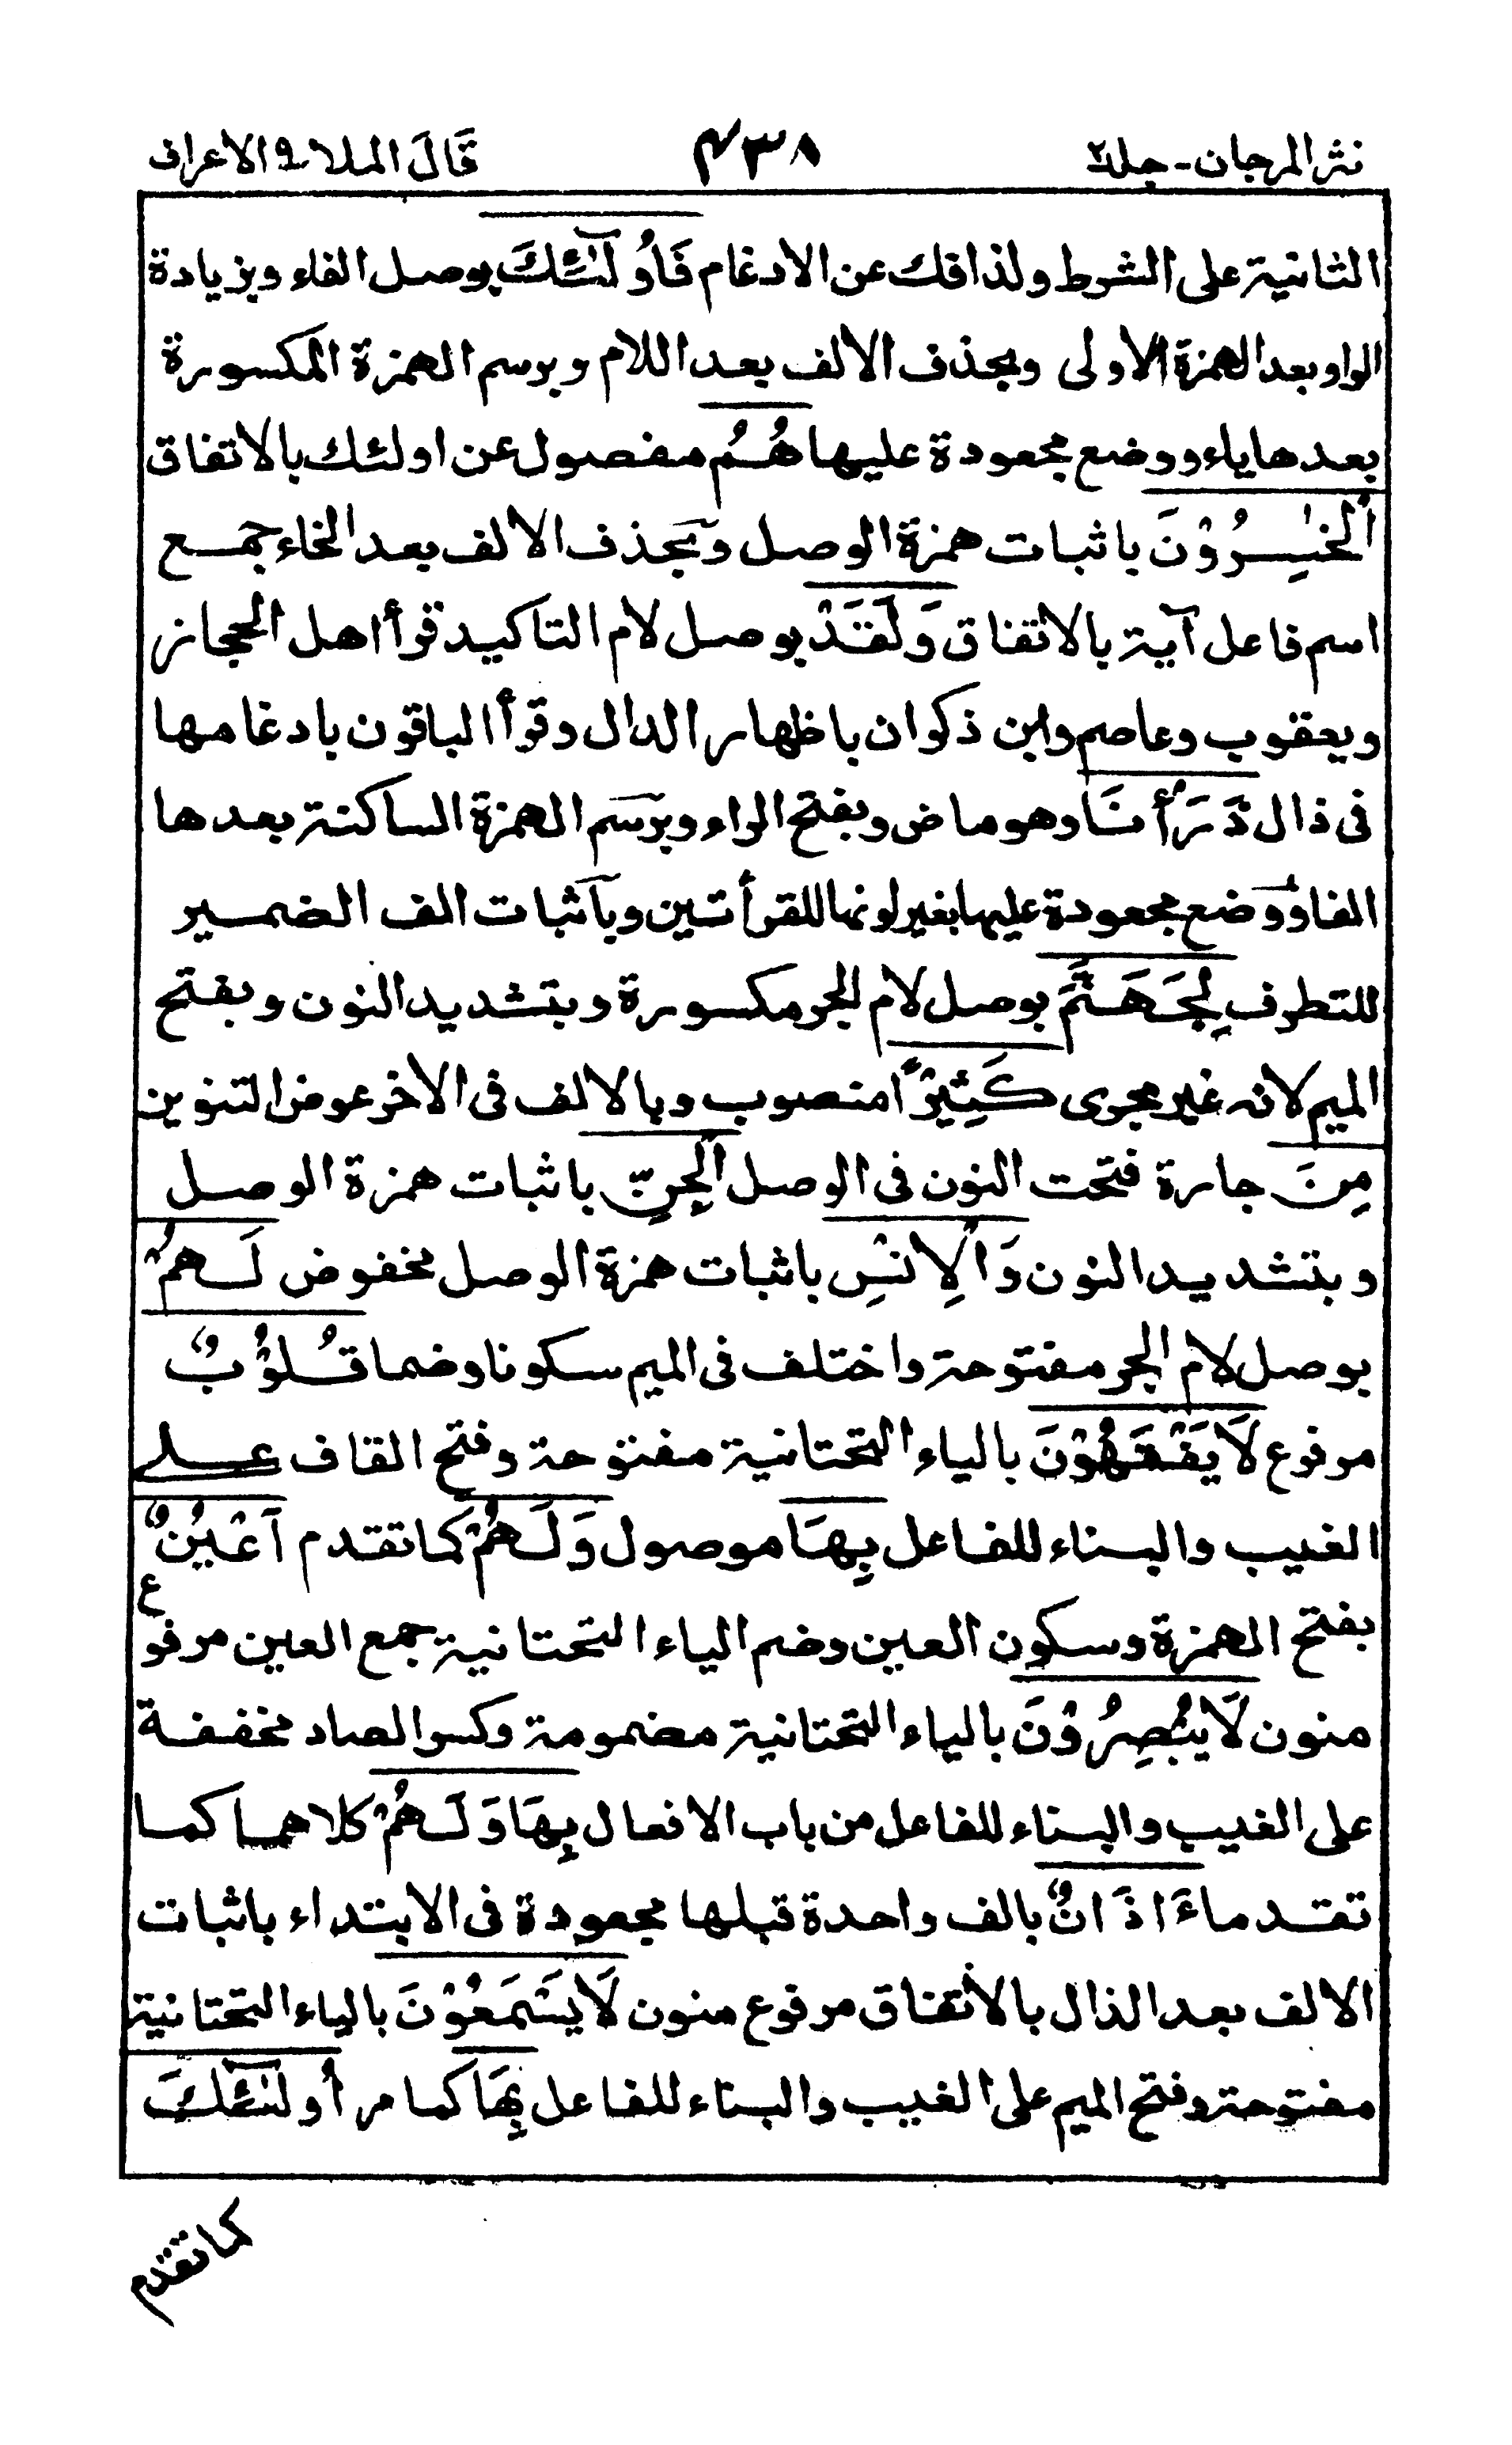 نثر المرجان - جلد٢ ٤٣٨ قَالَ الملا ٩ الاعراف
الثانية على الشرط ولذا فك عن الادغام فَأُولٰٓئِكَ بوصل الفاء وبزيادة
الواو بعد الهمزة الاولى وبحذف الالف بعد اللام وبرسم الهمزة المكسورة
بعدها ياء ووضع مجعودة عليها هُمُ مفصول عن اولئك بالاتفاق
اَلْخٰسِرُوْنَ باثبات همزة الوصل وبحذف الالف بعد الخاء جمع
اسم فاعل آية بالاتفاق وَلَقَدْ بوصل لام التاكيد قرأ اهل الحجاز
ويعقوب وعاصم وابن ذكوان باظهار الدال وقرأ الباقون بادغامها
فى ذال ذَرَأْنَا وهو ماض وبفتح الراء وبرسم الهمزة الساكنة بعدها
الفا ووضع مجعودة عليها بغير لونها للقرأتين وباثبات الف الضمير
للتطرف لِجَهَنَّمَ بوصل لام الجر مكسورة وبتشديد النون وبفتح
الميم لانه غير مجرى كَثِيْرًا منصوب وبالالف فى الاخر عوض التنوين
مِنَ جارة فتحت النون فى الوصل اَلْجِنِّ باثبات همزة الوصل
وبتشديد النون وَالْاِنْسِ باثبات همزة الوصل مخفوض لَهُمْ
بوصل لام الجر مفتوحة واختلف فى الميم سكونا وضما قُلُوْبٌ
مرفوع لَا يَفْقَهُوْنَ بالياء التحتانية مفتوحة وفتح القاف على
الغيب والبناء للفاعل بِهَا موصول وَلَهُمْ كما تقدم اَعْيُنٌ
بفتح الهمزة وسكون العين وضم الياء التحتانية جمع العين مرفوع
منون لَا يُبْصِرُوْنَ بالياء التحتانية مضمومة وكسر الصاد مخففة
على الغيب والبناء للفاعل من باب الافعال بِهَا وَلَهُمْ كلاهما كما
تقدما ءَاذَانٌ بالف واحدة قبلها مجعودة فى الابتداء باثبات
الالف بعد الذال بالاتفاق مرفوع منون لَا يَسْمَعُوْنَ بالياء التحتانية
مفتوحة وفتح الميم على الغيب والبناء للفاعل بِهَا كما مر أُولٰٓئِكَ
كما تقدم